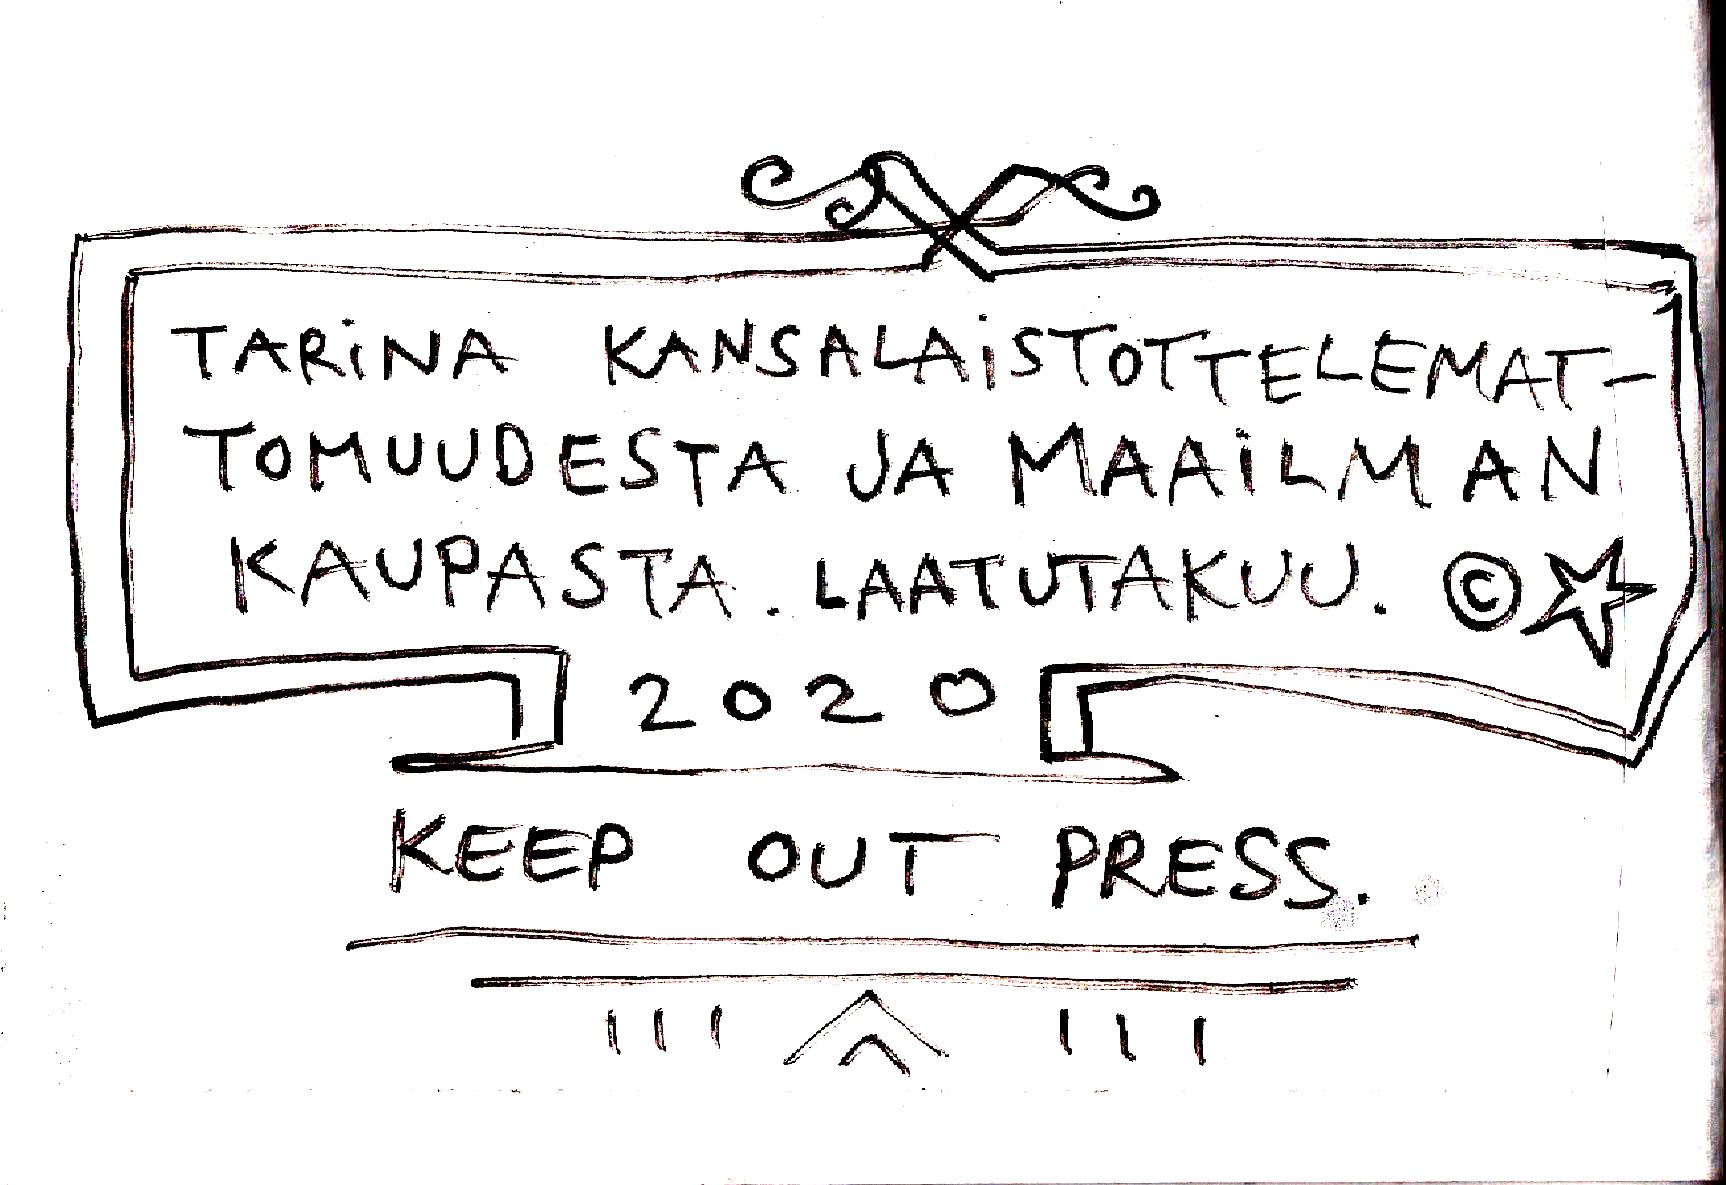 TARiNA KANSALAiSTOTTELEMAT-
TOMUUDESTA JA MAAiLMAN
KAUPASTA. LAATUTAKUU. ©☆
2020
KEEP OUT PRESS.